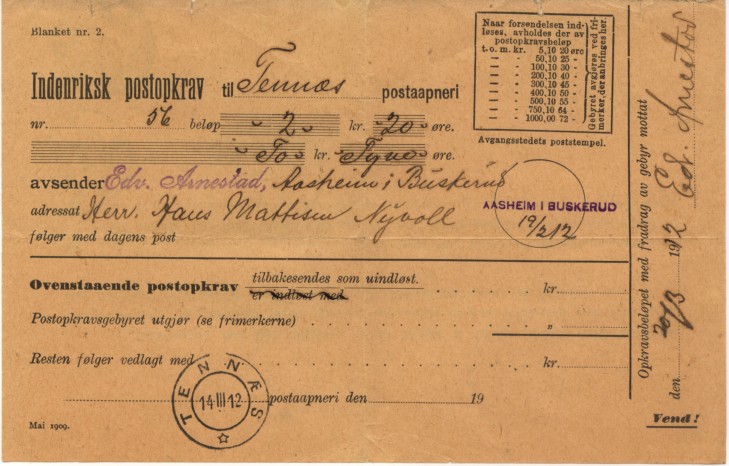 Blanket nr. 2.
Indenriksk postopkrav til Tennæs postaapneri
nr. 56 beløp 2 kr. 20 øre.
To kr. Tyve øre.
avsender Edv. Arnestad, Aasheim i Buskerud
adressat Herr. Hans Mattisen Nyvoll
følger med dagens post
Naar forsendelsen ind-
løses, avholdes der av
postopkravsbeløp
t. o. m. kr. 5,10 20 øre
— — 50,10 25 -
— — 100,10 30 -
— — 200,10 40 -
— — 300,10 45 -
— — 400,10 50 -
— — 500,10 55 -
— — 750,10 64 -
— — 1000,00 72 -
Gebyret avgjøres ved fri-
merker, der anbringes her.
Avgangsstedets poststempel.
AASHEIM I BUSKERUD
19/2 12
Ovenstaaende postopkrav tilbakesendes som uindløst.
er indløst med kr.
Postopkravsgebyret utgjør (se frimerkerne) „
Resten følger vedlagt med kr.
postaapneri den 19
TENNÆS
14 III 12
Mai 1909.
Opkravsbeløpet med fradrag av gebyr mottat
den 20/3 1912 Edv. Arnestad
Vend!